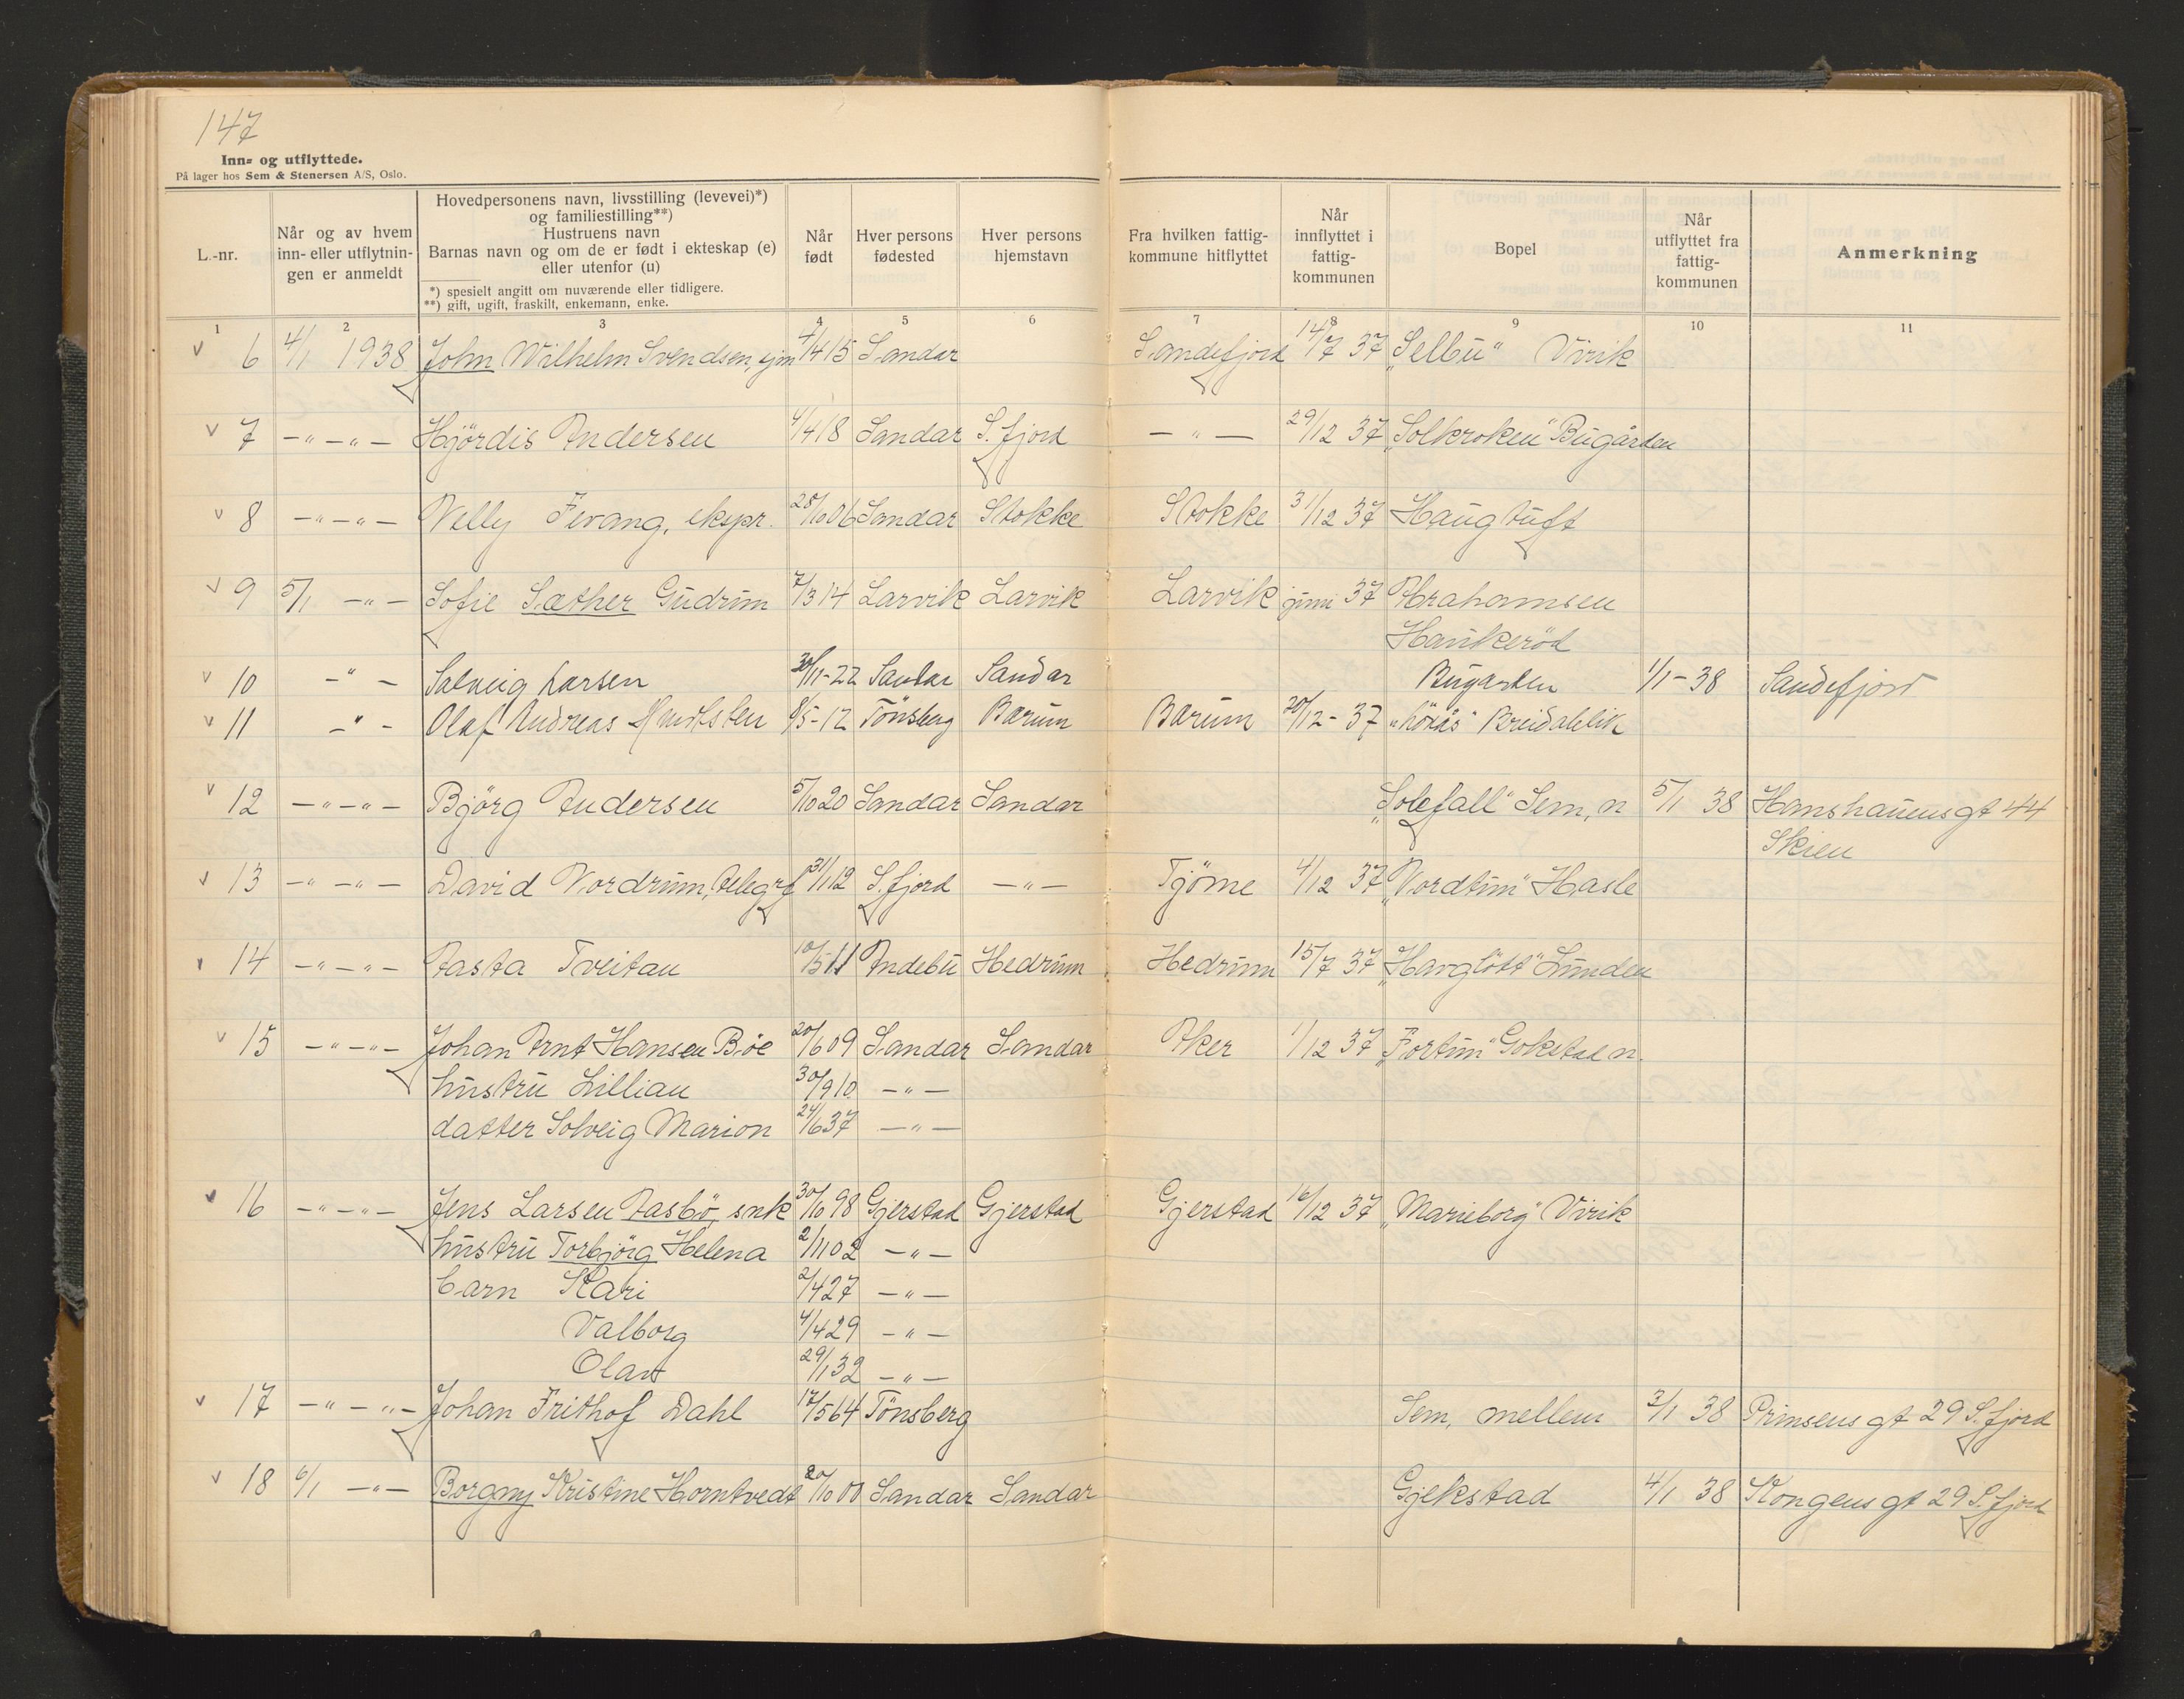 147
Inn- og utflyttede.
På lager hos Sem & Stenersen A/S, Oslo.
L.-nr.
Når og av hvem inn- eller utflytningen er anmeldt
Hovedpersonens navn, livsstilling (levevei)*) og familiestilling**)
Hustruens navn
Barnas navn og om de er født i ekteskap (e) eller utenfor (u)
*) spesielt angitt om nuværende eller tidligere.
**) gift, ugift, fraskilt, enkemann, enke.
Når født
Hver persons fødested
Hver persons hjemstavn
Fra hvilken fattigkommune hitflyttet
Når innflyttet i fattigkommunen
Bopel
Når utflyttet fra fattigkommunen
Anmerkning
1 2 3 4 5 6 7 8 9 10 11
v 6 4/1 1938 John Wilhelm Svendsen, sjm 4/4 15 Sandar Sandefjord 14/7 37 „Selbu" Virik
v 7 -"-"- Hjördis Andersen 4/4 18 Sandar S.fjord -"- 29/12 37 „Solkroken" Bugården
v 8 -"-"- Velly Fevang, ekspr. 28/10 06 Sandar Stokke Stokke 31/12 37 Haugtuft
v 9 5/1 -"- Sofie Sæther Gudrun 7/3 14 Larvik Larvik Larvik juni 37 Abrahamsen
Haukerød
v 10 -"- Solveig Larsen 30/11-22 Sandar Sandar Bugården 1/1-38 Sandefjord
v 11 -"- Olaf Andreas 8/5-12 Tönsberg Bærum Bærum 20/12-37 Breidablik
v 12 -"-"- Björg Andersen 5/10 20 Sandar Sandar „Solefall" Sem, n 5/1 38 Hanshauensgt 44
Skien
v 13 -"-"- David Nordrum, telegrf 31/1 12 S.fjord -"- Tjöme 4/12 37 „Nordtun" Hasle
v 14 -"-"- Aasta Tveitan 10/5 11 Andebu Hedrum Hedrum 15/7 37 „Hauglött" Lunden
v 15 -"-"- Johan Arnt Hansen Bøe 20/6 09 Sandar Sandar Aker 1/12 37 „Fortun" Gokstad n.
hustru Lillian 30/9 10 -"-
datter Solveig Marion 24/6 37 -"-
v 16 -"-"- Jens Larsen Aasbö, snk 30/10 98 Gjerstad Gjerstad Gjerstad 16/12 37 „Marieborg" Virik
hustru Torbjörg Helena 2/11 02 -"-
barn Kari 2/4 27 -"-
Valborg 4/4 29 -"-
Olav 29/1 32 -"-
v 17 -"-"- Johan Frithof Dahl 17/5 64 Tönsberg Sem, mellem 3/1 38 Prinsens gt 29 S.fjord
v 18 6/1 -"- Borgny Kristine Horntvedt 20/10 00 Sandar Sandar Gjekstad 4/1 38 Kongens gt 29 S.fjord